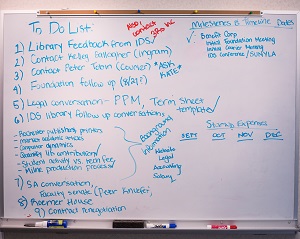 To Do List:
ASAP
contact
3rd VC
1) Library Feedback from IDS/
2) Contact Kelley Gallagher (Ingram)
3) Contact Peter Tobin (Courier) *ASK KATE*
4) Foundation follow up (8/21?)
5) Legal conversation - PPM, Term Sheet templates/
6) IDS library follow up conversations,
- customer dynamics
- Quantify its contributions/
- Student activity vs. tech fee,
- Hume production process/
Background information
Website
Legal
Accounting
Salary
7) SA conversation,
Faculty senate (Peter Knuefer)
8) Roemer House
9) contract renegotiation
Milestones & Timeline Dates
✓ Benefit Corp
Initial Foundation Meeting
Initial Courier Meeting
IDS Conference/SUNYLA
Startup Expenses
SEPT OCT NOV DEC